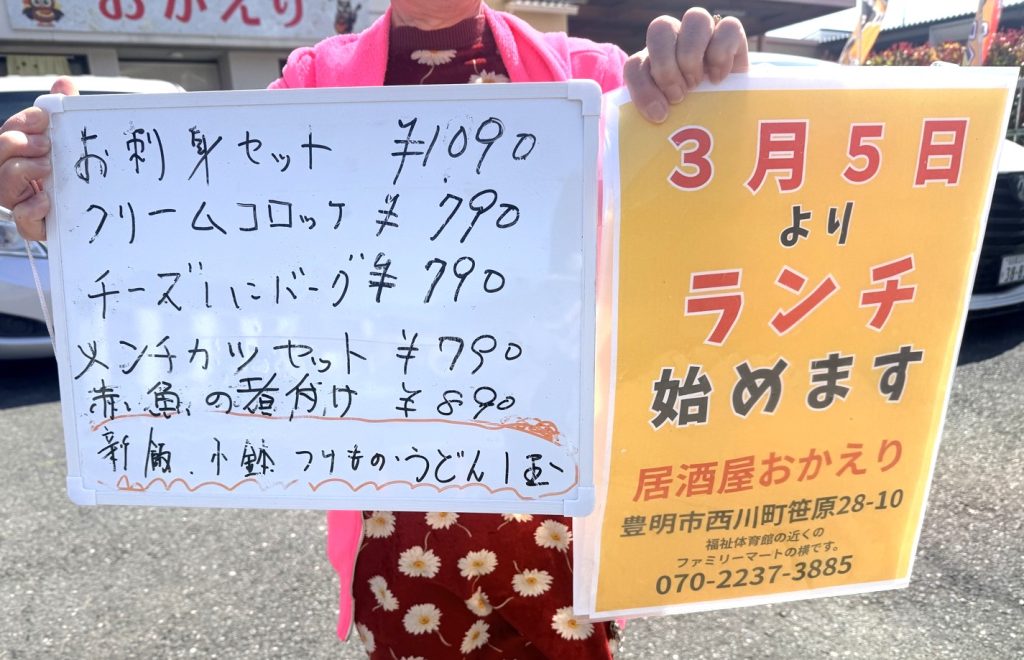 おかえり
お刺身セット ¥1.090
クリームコロッケ ¥790
チーズハンバーグ ¥790
メンチカツセット ¥790
赤魚の煮付け ¥890
新飯、小鉢 つけもの・うどん1玉
3月5日
より
ランチ
始めます
居酒屋おかえり
豊明市西川町笹原28-10
福祉体育館の近くの
ファミリーマートの横です。
070-2237-3885